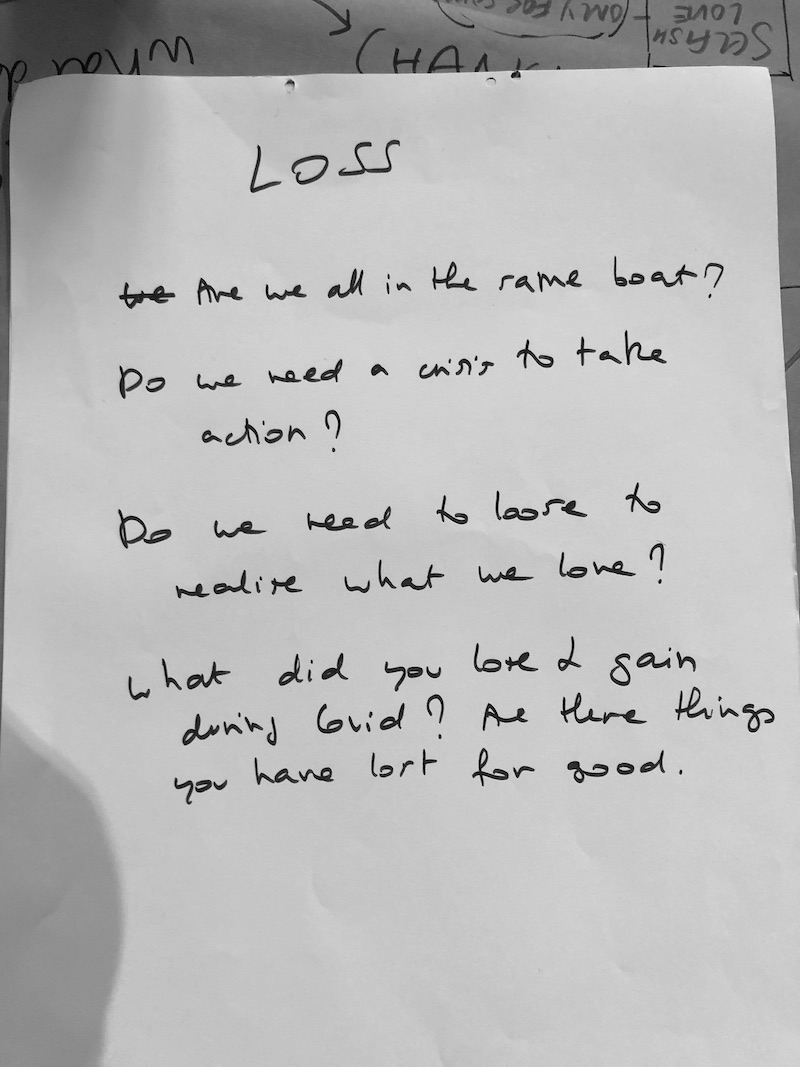 CHANK
SELFISH
LOVE
ONLY FOR
LOSS
we Are we all in the same boat?
Do we need a crisis to take
action?
Do we need to loose to
realise what we love?
What did you lose & gain
during Covid? Are there things
you have lost for good.